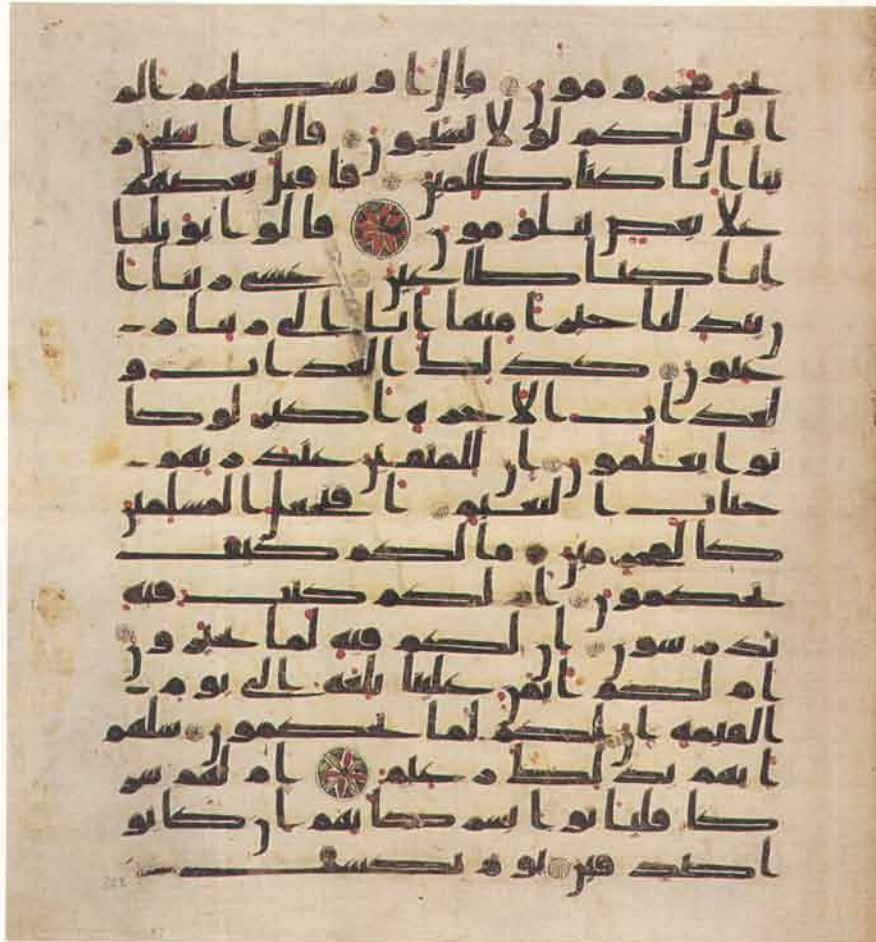 نحن محرومون قال اوسطهم الم
اقل لكم لولا تسبحون قالوا سبحن ر
بنا انا كنا ظلمين فاقبل بعضهم
على بعض يتلومون قالوا يويلنا
انا كنا طغين عسى ربنا ا
ن يبدلنا خيرا منها انا الى ربنا ر
غبون كذلك العذاب و
لعذاب الاخرة اكبر لو كا
نوا يعلمون ان للمتقين عند ربهم
جنات النعيم افنجعل المسلمين
كالمجرمين ما لكم كيف
تحكمون ام لكم كتب فيه
تدرسون ان لكم فيه لما تخيرون
ام لكم ايمن علينا بلغة الى يوم
القيمة ان لكم لما تحكمون سلهم
ايهم بذلك زعيم ام لهم شر
كا فلياتوا بشركايهم ان كانو
ا صدقين يوم يكشف